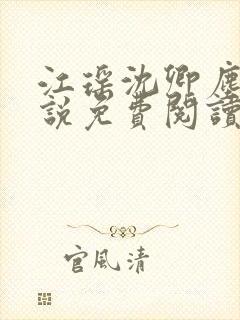 江瑶沈卿塵
說免費閱讀
官風清